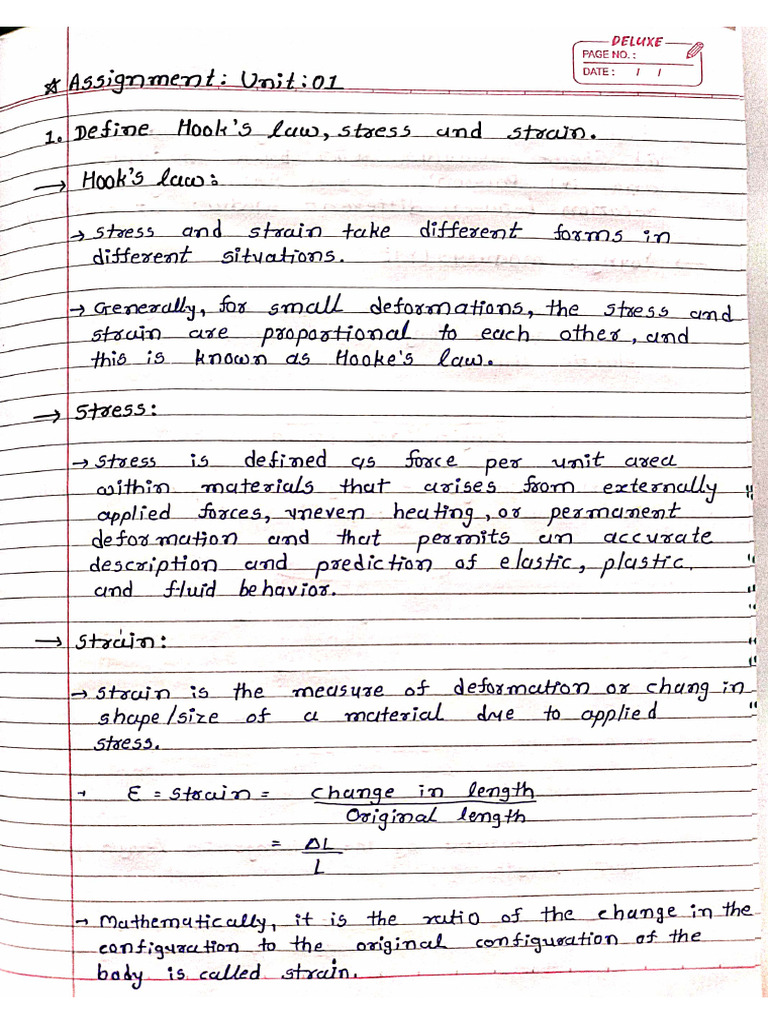 DELUXE
PAGE NO. :
DATE : / /
☆ Assignment: Unit:01
1. Define Hook's law, stress and strain.
→ Hook's law:
→ stress and strain take different forms in
different situations.
→ Generally, for small deformations, the stress and
strain are proportional to each other, and
this is known as Hooke's law.
→ Stress:
→ stress is defined as force per unit area
within materials that arises from externally
applied forces, uneven heating, or permanent
deformation and that permits an accurate
description and prediction of elastic, plastic
and fluid behavior.
→ Strain:
→ strain is the measure of deformation or chang in
shape/size of a material due to applied
stress.
→ ε = strain = change in length
Original length
= ΔL
L
→ Mathematically, it is the ratio of the change in the
configuration to the original configuration of the
body is called strain.